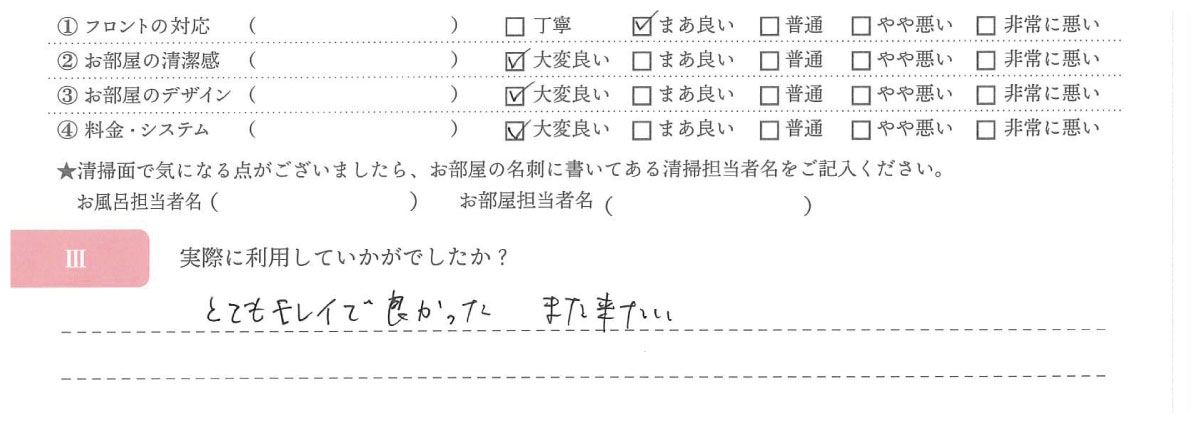 ① フロントの対応 ( ) □ 丁寧 ☑ まあ良い □ 普通 □ やや悪い □ 非常に悪い
② お部屋の清潔感 ( ) ☑ 大変良い □ まあ良い □ 普通 □ やや悪い □ 非常に悪い
③ お部屋のデザイン ( ) ☑ 大変良い □ まあ良い □ 普通 □ やや悪い □ 非常に悪い
④ 料金・システム ( ) ☑ 大変良い □ まあ良い □ 普通 □ やや悪い □ 非常に悪い
★清掃面で気になる点がございましたら、お部屋の名刺に書いてある清掃担当者名をご記入ください。
お風呂担当者名 ( ) お部屋担当者名 ( )
Ⅲ 実際に利用していかがでしたか？
とてもキレイで良かった また来たい